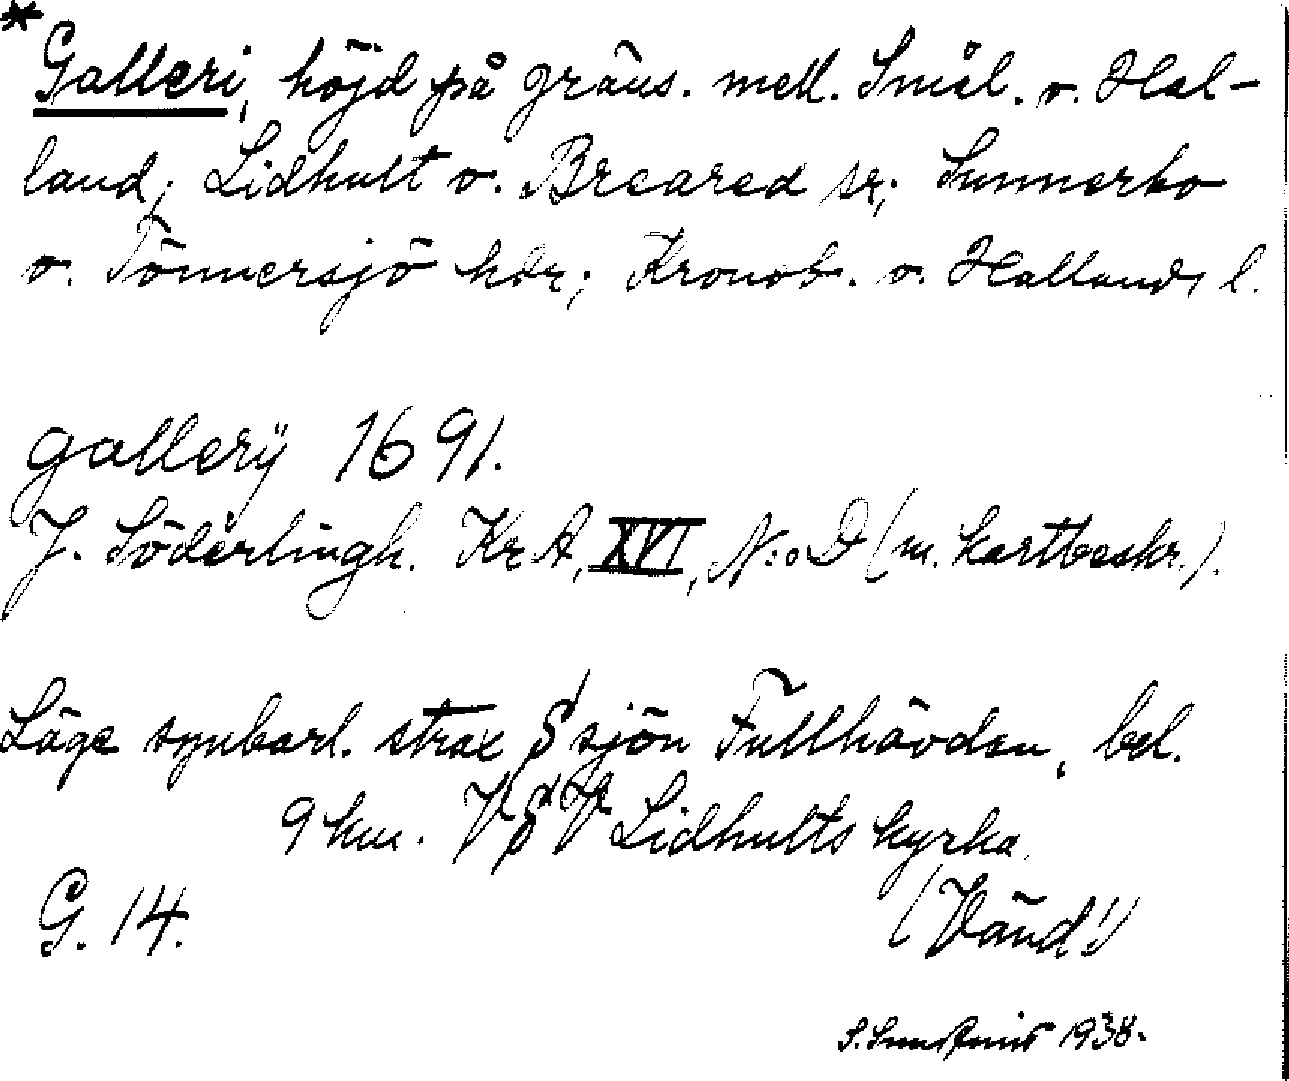 * Galleri, höjd på gräns. mell. Smål. o. Hal-
land; Lidhult o. Breared sr; Sunnerbo
o. Tönnersjö hdr; Kronob. o. Hallands l.
gallerÿ 1691.
J. Söderlingh. Kr A, XVI, N:o D (m. kartbeskr.).
Läge synbarl. strax S sjön Fullhövden, bel.
9 km. VSV Lidhults kyrka.
(Vänd!)
G. 14.
1938.